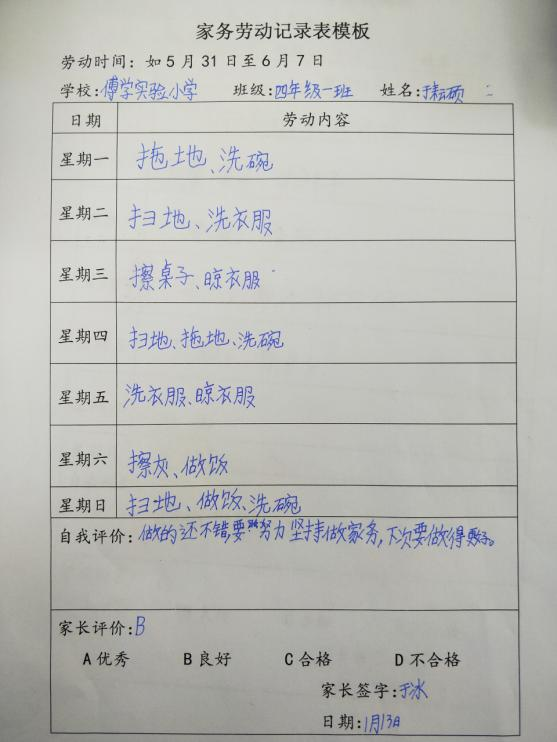 家务劳动记录表模板
劳动时间：如5月31日至6月7日
学校：傅学实验小学 班级：四年级一班 姓名：于耘硕
日期 劳动内容
星期一 拖地、洗碗
星期二 扫地、洗衣服
星期三 擦桌子、晾衣服
星期四 扫地、拖地、洗碗
星期五 洗衣服、晾衣服
星期六 擦灰、做饭
星期日 扫地、做饭、洗碗
自我评价：做的还不错，要努力坚持做家务，下次要做得更好。
家长评价：B
A优秀 B良好 C合格 D不合格
家长签字：于冰
日期：1月13日